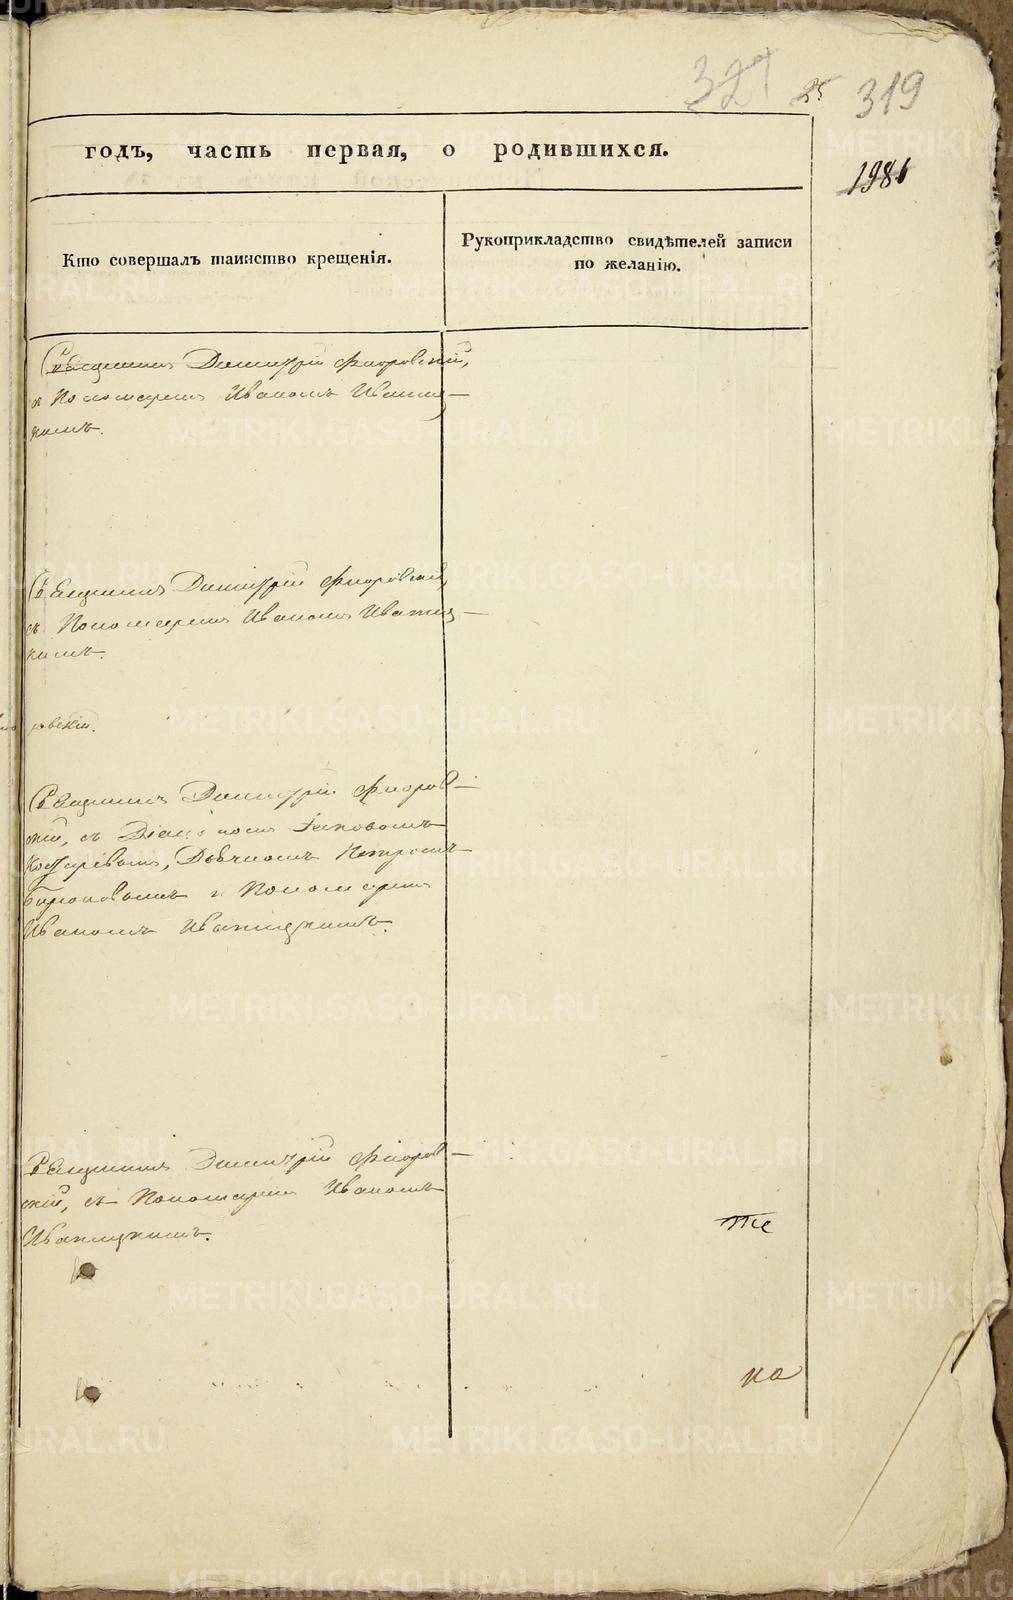 327 25 319
годъ, часть первая, о родившихся.
1986
Кто совершалъ таинство крещенія.
Рукоприкладство свидѣтелей записи
по желанію.
Священникъ Димитрій Флоровскій,
и Пономаремъ Иваномъ Иваниц-
кимъ.
Священникъ Димитрій Флоровскій,
съ Пономаремъ Иваномъ Иваниц-
кимъ.
Священникъ Димитрій Флоров-
скій, съ Діакономъ
Дьячкомъ Петромъ
Бирюковымъ и Пономаремъ
Иваномъ Иваницкимъ.
Священникъ Димитрій Флоров-
скій, съ Пономаремъ Иваномъ
Иваницкимъ.
на
METRIKI.GASO-URAL.RU